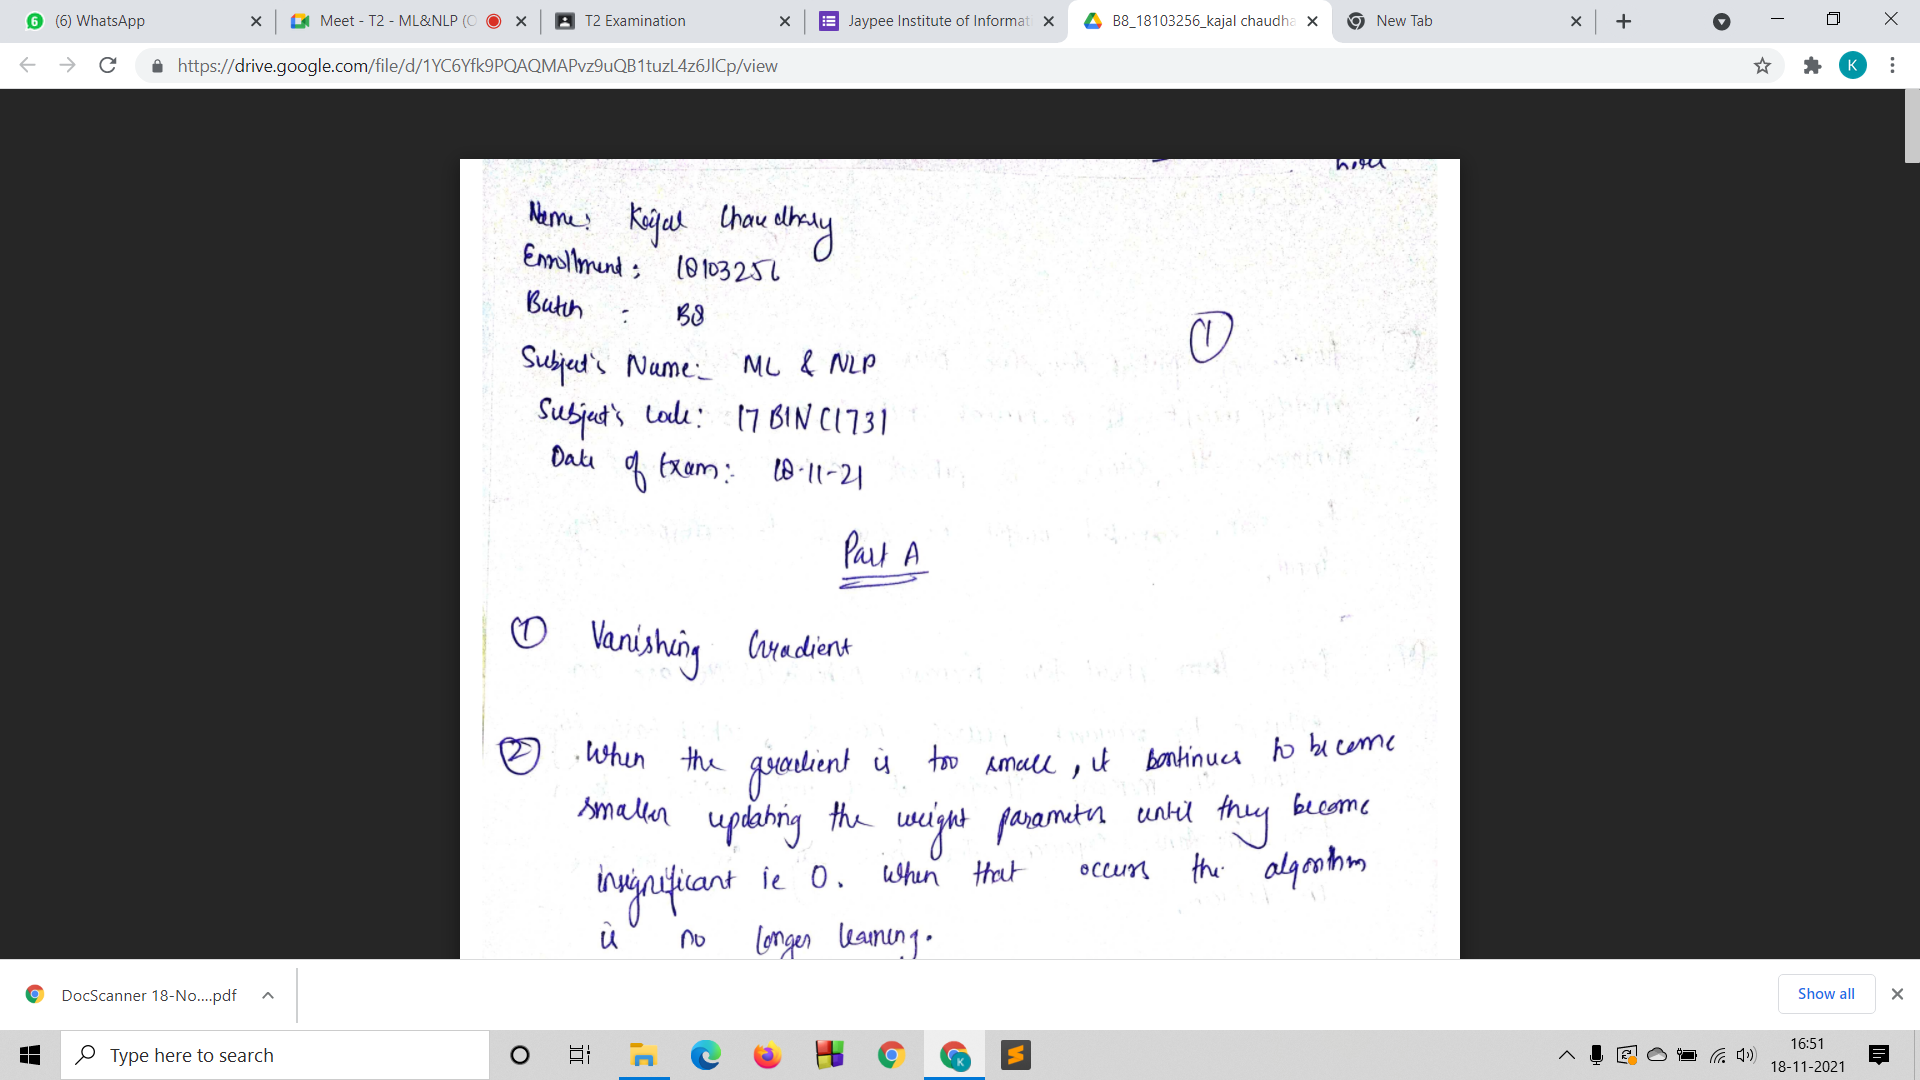 (6) WhatsApp
Meet - T2 - ML&NLP (O
T2 Examination
Jaypee Institute of Informat
B8_18103256_kajal chaudha
New Tab
https://drive.google.com/file/d/1YC6Yfk9PQAQMAPvz9uQB1tuzL4z6JlCp/view
K
Name: Kajal Chaudhary
Enrollment: 18103256
Batch : B8
1
Subject's Name:- ML & NLP
Subject's Code: 17BINC1731
Date of Exam:- 18-11-21
Part A
1 Vanishing Gradient
2 When the gradient is too small, it continues to become
smaller updating the weight parameters until they become
insignificant ie 0. When that occurs the algorithm
is no longer learning.
DocScanner 18-No....pdf
Show all
Type here to search
16:51
18-11-2021